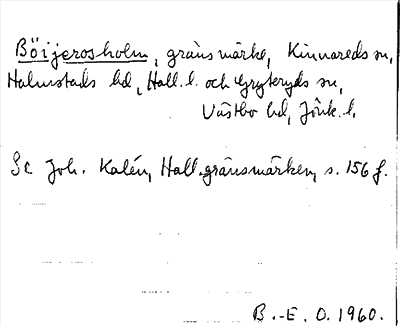 Böijerosholm, gränsmärke, Kinnareds sn,
Halmstads hd, Hall. l. och Gryteryds sn,
Västbo hd, Jönk. l.
Se Joh. Kalén, Hall. gränsmärken, s. 156 f.
B.-E. O. 1960.